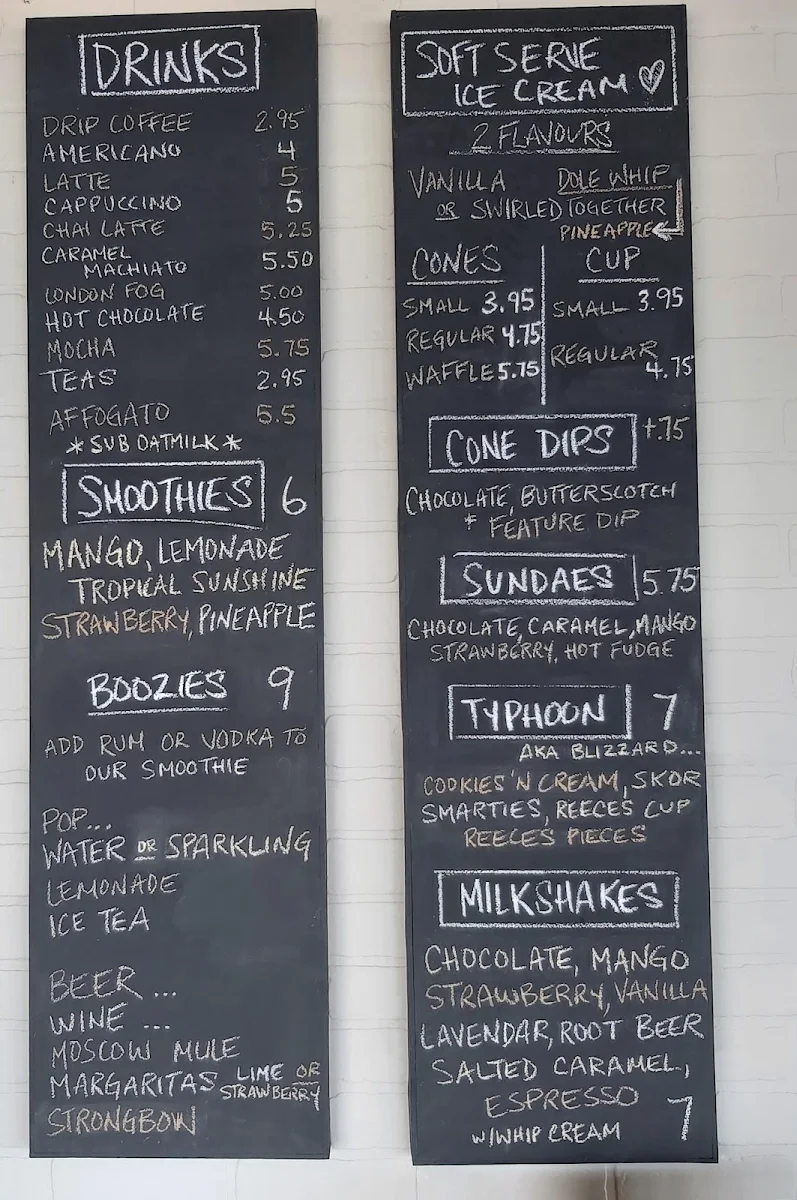 DRINKS
DRIP COFFEE 2.95
AMERICANO 4
LATTE 5
CAPPUCCINO 5
CHAI LATTE 5.25
CARAMEL
MACHIATO 5.50
LONDON FOG 5.00
HOT CHOCOLATE 4.50
MOCHA 5.75
TEAS 2.95
AFFOGATO 5.5
*SUB OATMILK*
SMOOTHIES 6
MANGO, LEMONADE
TROPICAL SUNSHINE
STRAWBERRY, PINEAPPLE
BOOZIES 9
ADD RUM OR VODKA TO
OUR SMOOTHIE
POP...
WATER OR SPARKLING
LEMONADE
ICE TEA
BEER ...
WINE ...
MOSCOW MULE
MARGARITAS LIME OR
STRAWBERRY
STRONGBOW
SOFT SERVE
ICE CREAM ♡
2 FLAVOURS
VANILLA DOLE WHIP
OR SWIRLED TOGETHER
PINEAPPLE
CONES
SMALL 3.95
REGULAR 4.75
WAFFLE 5.75
CUP
SMALL 3.95
REGULAR
4.75
CONE DIPS +.75
CHOCOLATE, BUTTERSCOTCH
+ FEATURE DIP
SUNDAES 5.75
CHOCOLATE, CARAMEL, MANGO
STRAWBERRY, HOT FUDGE
TYPHOON 7
AKA BLIZZARD...
COOKIES 'N CREAM, SKOR
SMARTIES, REECES CUP
REECES PIECES
MILKSHAKES
CHOCOLATE, MANGO
STRAWBERRY, VANILLA
LAVENDAR, ROOT BEER
SALTED CARAMEL,
ESPRESSO
W/WHIP CREAM 7